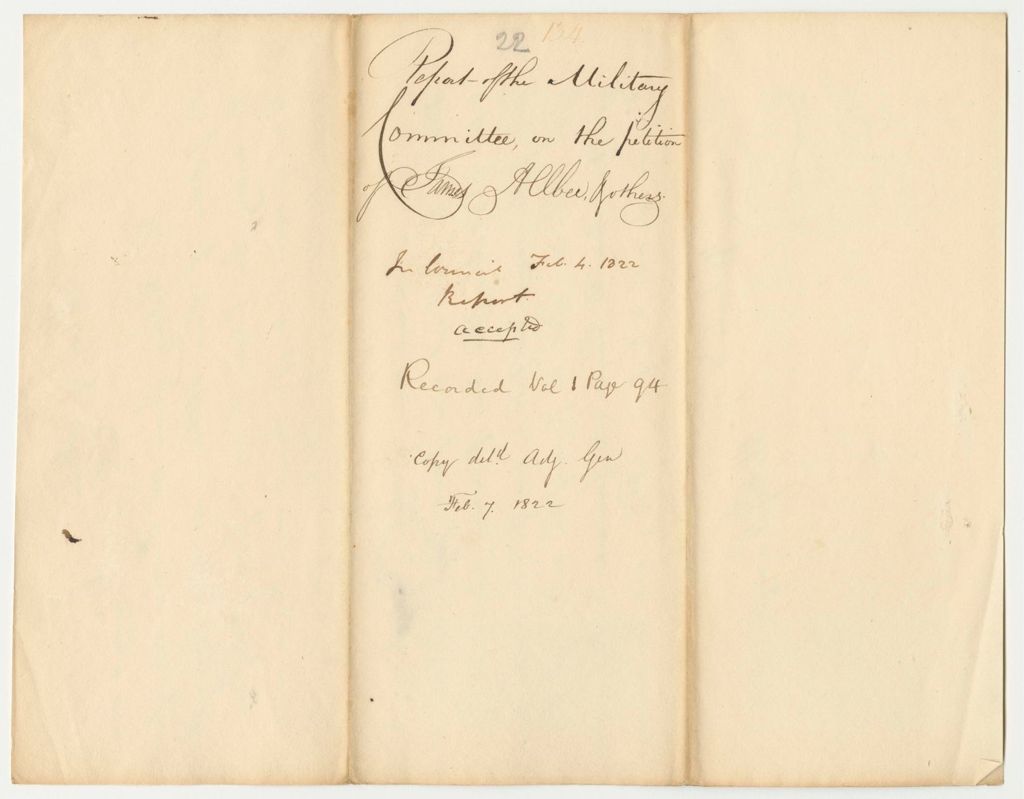 22 134
Report of the Military
Committee, on the petition
of James Allbee, & others.
In Council Feb. 4. 1822
Report
accepted
Recorded Vol 1 Page 94
Copy deld Adj. Gen
Feb. 7. 1822